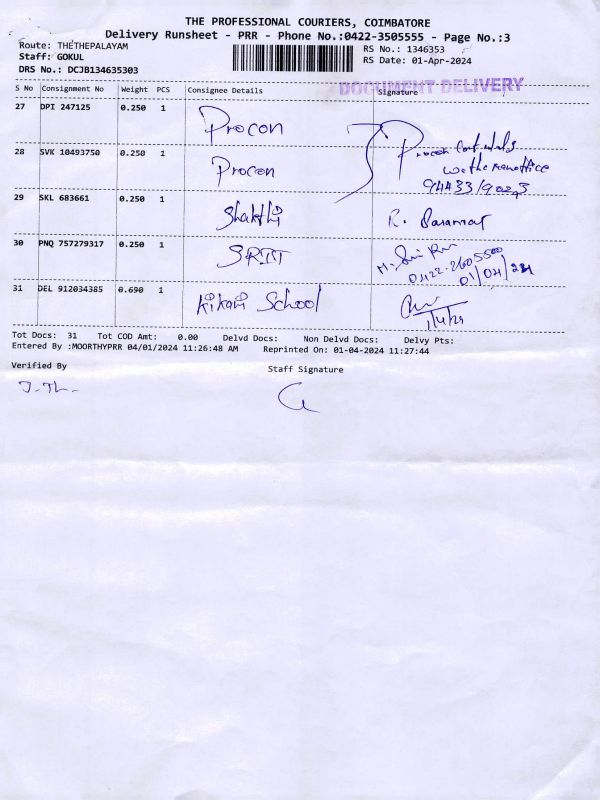 THE PROFESSIONAL COURIERS, COIMBATORE
Delivery Runsheet - PRR - Phone No.:0422-3505555 - Page No.:3
Route: THETHEPALAYAM RS No.: 1346353
Staff: GOKUL RS Date: 01-Apr-2024
DRS No.: DCJB134635303
DOCUMENT DELIVERY
S No Consignment No Weight PCS Consignee Details Signature
27 DPI 247125 0.250 1 Procon
28 SVK 10493750 0.250 1 Procon Procon
94433/90223
29 SKL 683661 0.250 1 Shakthi R.
30 PNQ 757279317 0.250 1 SRIT M.
0422-2605500
01/04/24
31 DEL 912034385 0.690 1 Kikani School
1/4/24
Tot Docs: 31 Tot COD Amt: 0.00 Delvd Docs: Non Delvd Docs: Delvy Pts:
Entered By :MOORTHYPRR 04/01/2024 11:26:48 AM Reprinted On: 01-04-2024 11:27:44
Verified By Staff Signature